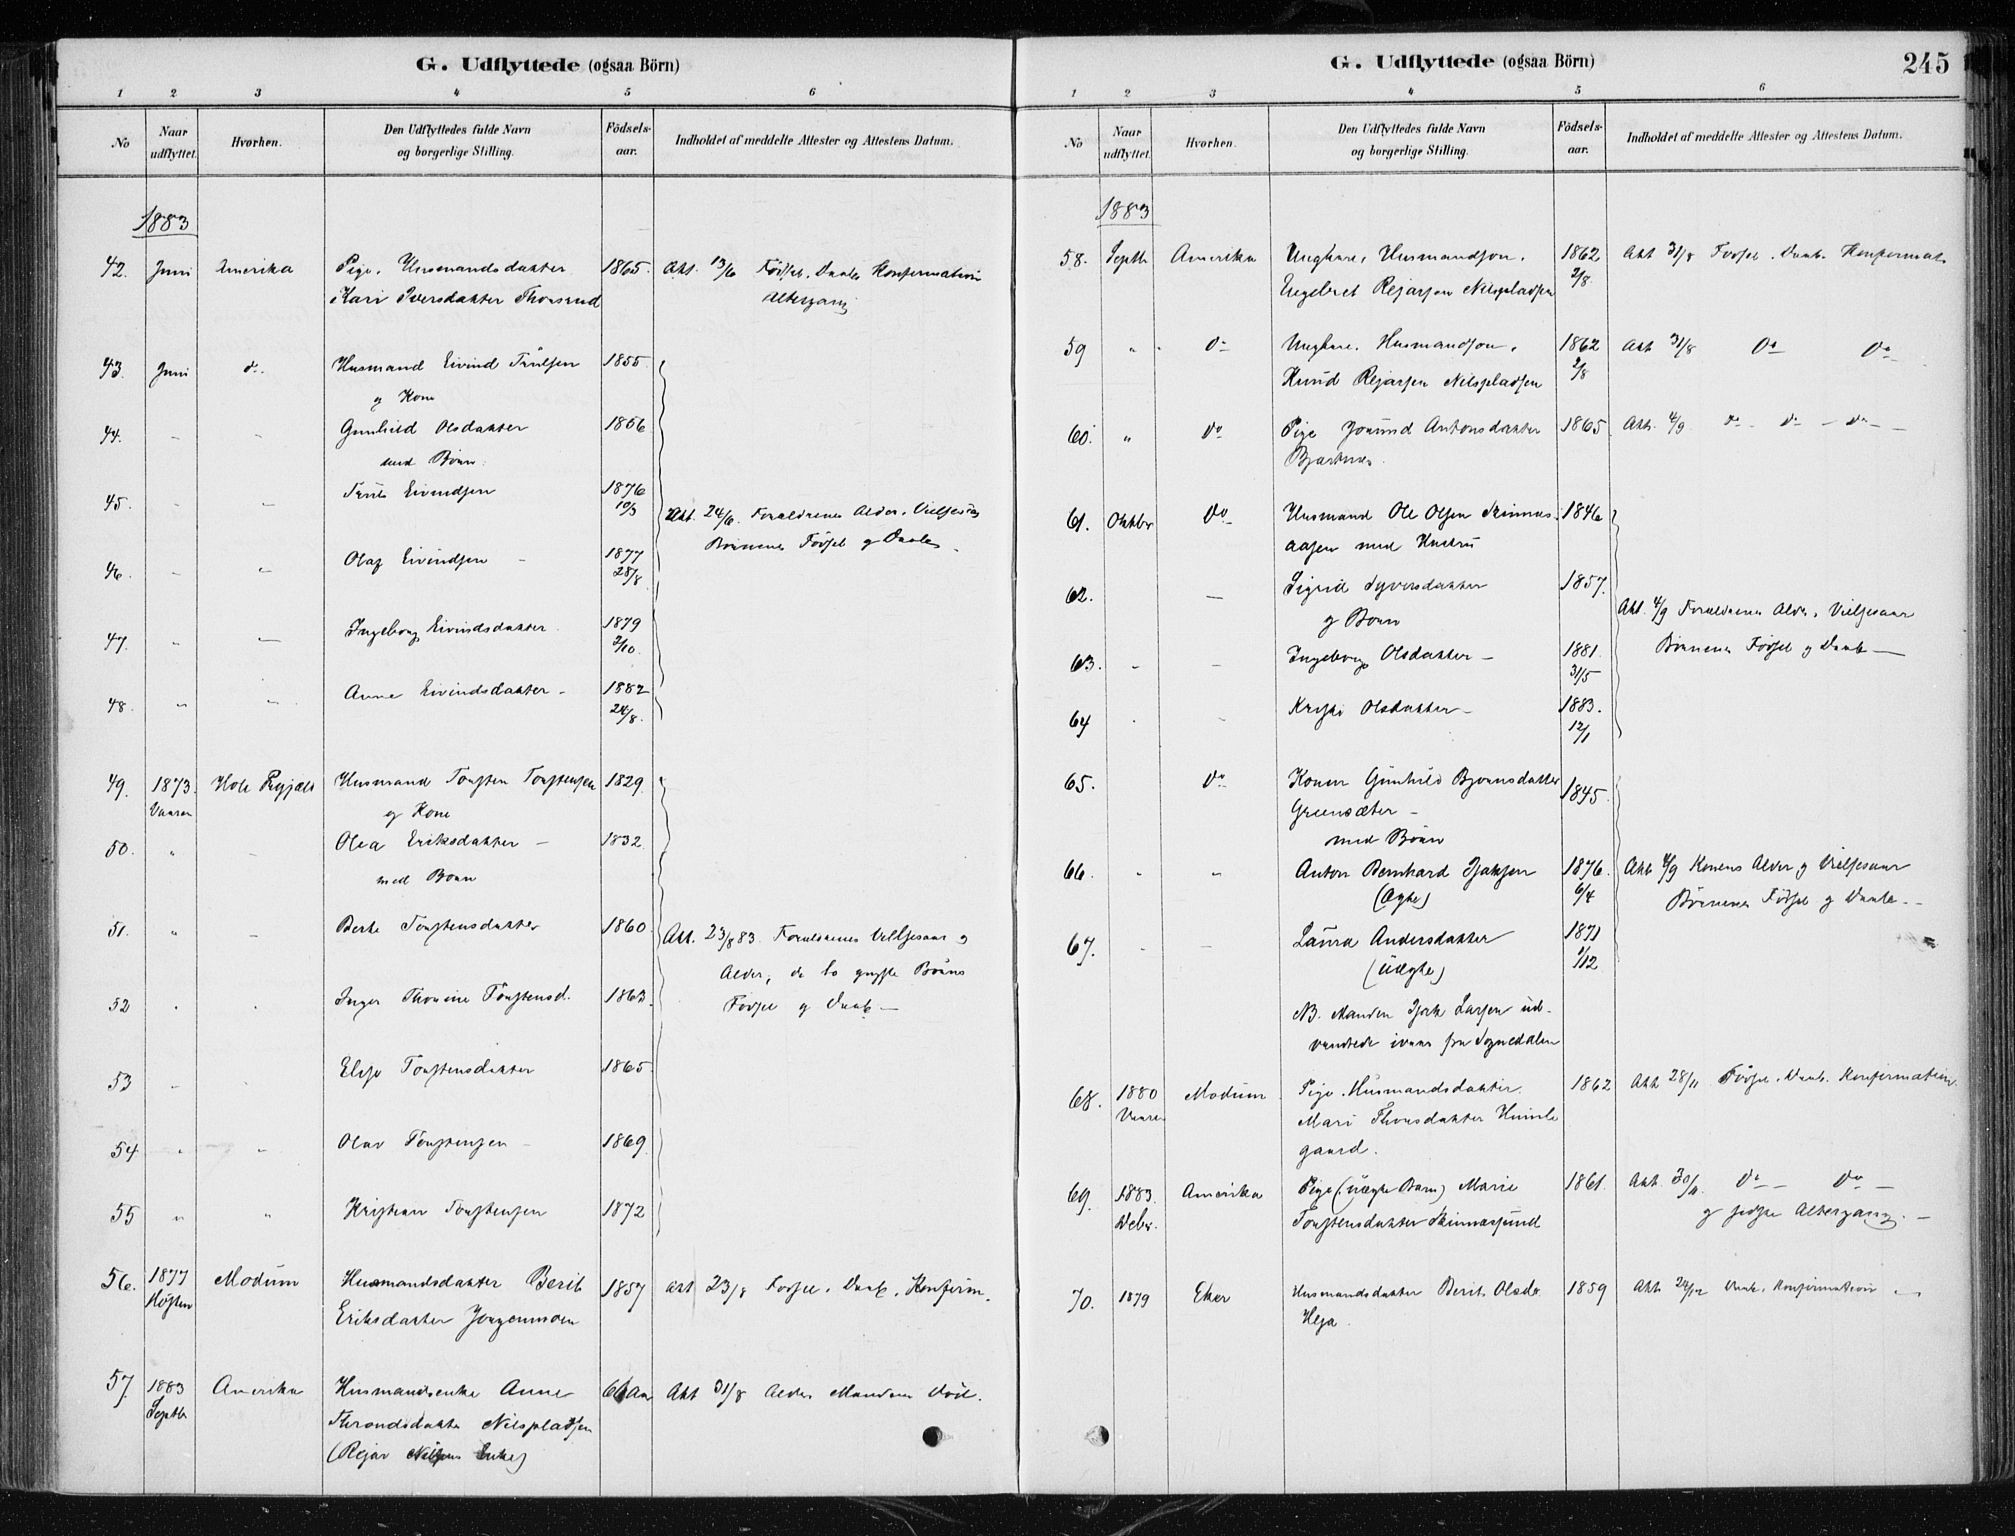 G. Udflyttede (ogsaa Börn)
1 2 3 4 5 6
No
Naar udflyttet.
Hvorhen.
Den Udflyttedes fulde Navn og borgerlige Stilling.
Födsels-aar.
Indholdet af meddelte Attester og Attestens Datum.
1883
42. Juni Amerika Pige, Husmandsdatter 1865. Att. 13/6 Fødsel, Daab Konfirmation
Kari Iversdatter
Altergang
43. Juni do. Husmand Eivind Trulsen 1855.
og Kone
44. - - Gunhild Olsdatter 1856
med Børn:
45. - - Truls Eivindsen 1876
10/3
Att. 24/6. Forældrenes Alder, Vielsesaar
Børnenes Fødsel og Daab
46. - - Olaf Eivindsen - 1877
28/8.
47. - - Ingeborg Eivindsdatter 1879
2/10.
48. " " Anne Eivindsdatter - 1882
24/8.
49. 1873. Hole Prgjæld Husmand Torsten Torstensen 1829.
Vaaren og Kone
50. " - Olea Eriksdatter - 1832.
med Børn
51. " - Berte Torstensdatter 1860
Att. 23/8 83. Forældrenes Vielsesaar og
Alder, de to yngste Børns
Fødsel og Daab -
52 " " Inger Thorine Torstensd. 1863.
53 - - Elise Torstensdatter 1865
54 " " Olav Torstensen - 1869.
55 " " Kristian Torstensen 1872
56. 1877 Modum Husmandsdatter Berit 1857 att 23/8 Fødsel, Daab, Konfirm.
Høsten Eriksdatter
57. 1883 Amerika Husmandsenke Anne Aar Att 31/8 Alder Mandens Død.
Septbr Throndsdatter Nilspladsen
(Rejar Nilsens Enke)
G. Udflyttede (ogsaa Börn)
245
1 2 3 4 5 6
No
Naar udflyttet.
Hvorhen.
Den Udflyttedes fulde Navn og borgerlige Stilling.
Födsels-aar.
Indholdet af meddelte Attester og Attestens Datum.
1883
58. Septbr Amerika Ungkarl, Husmandsøn, 1862 Att 31/8 Fødsel, Daab. Konfirmat.
Engebret Rejarsen Nilspladsen 2/8.
59 " - Do Ungkarl, Husmandsøn, 1862 Att 31/8 Do Do
Knud Rejarsen Nilspladsen 2/8
60. " do Pige Jorund Antonsdatter 1865 Att. 4/9 do - do - do -
Bjertnæs.
61. Oktbr do Husmand Ole Olsen 1846
aasen med Hustru
62. - Sigrid Syversdatter 1857.
og Børn
Att. 4/9 Forældrenes Alder, Vielsesaar
Børnenes Fødsel og Daab -
63. - - Ingeborg Olsdatter - 1881.
31/5
64 - - Kristi Olsdatter - 1883.
12/1
65. do Konen Gunhild Bjørnsdatter 1845.
Grønsæter -
med Børn
66. " " Anton Bernhard Isaksen 1876. Att 4/9 Konens Alder og Vielsesaar
(Ægte) 6/4 Børnenes Fødsel og Daab. -
67. - - Laura Andersdatter 1871
(uægte) 1/12
NB. Manden Isak Larsen ud-
vandrede ivaar fra Sognedalen
68. 1880 Modum Pige. Husmandsdatter 1862 Att 28/11 Fødsel, Daab. Konfirmation.
Vaaren Mari Thorsdatter Humle
gaard.
69. 1883. Amerika Pige (uægte Barn) Marie 1861. Att. 30/11 Do - Do -
Decbr. Torstensdatter
og sidste Altergang. -
70. 1879 Eker Husmandsdatter Berit Olsdr 1859 Att 24/12 Daab, Konfirmation
Heja.